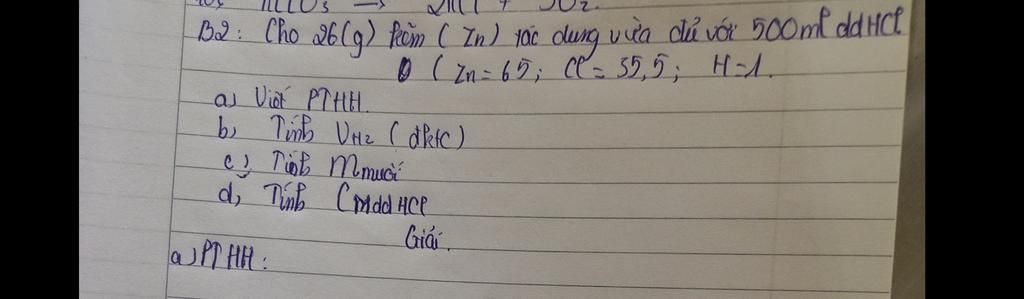 B2: Cho 26(g) kẽm (Zn) tác dụng vừa đủ với 500ml ddHCl
(Zn=65; Cl=35,5; H=1.
a) Viết PTHH.
b, Tính VH2 (đktc)
c, Tính Mmuối
d, Tính CMddHCl
Giải.
a) PTHH: